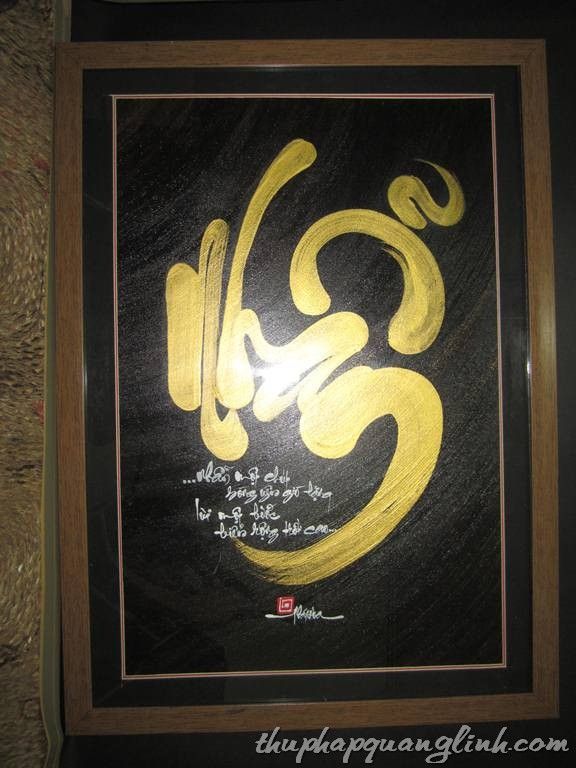 Nhẫn
...nhẫn một chút
sóng yên gió lặng
lùi một bước
biển rộng trời cao...
thuphapquanglinh.com